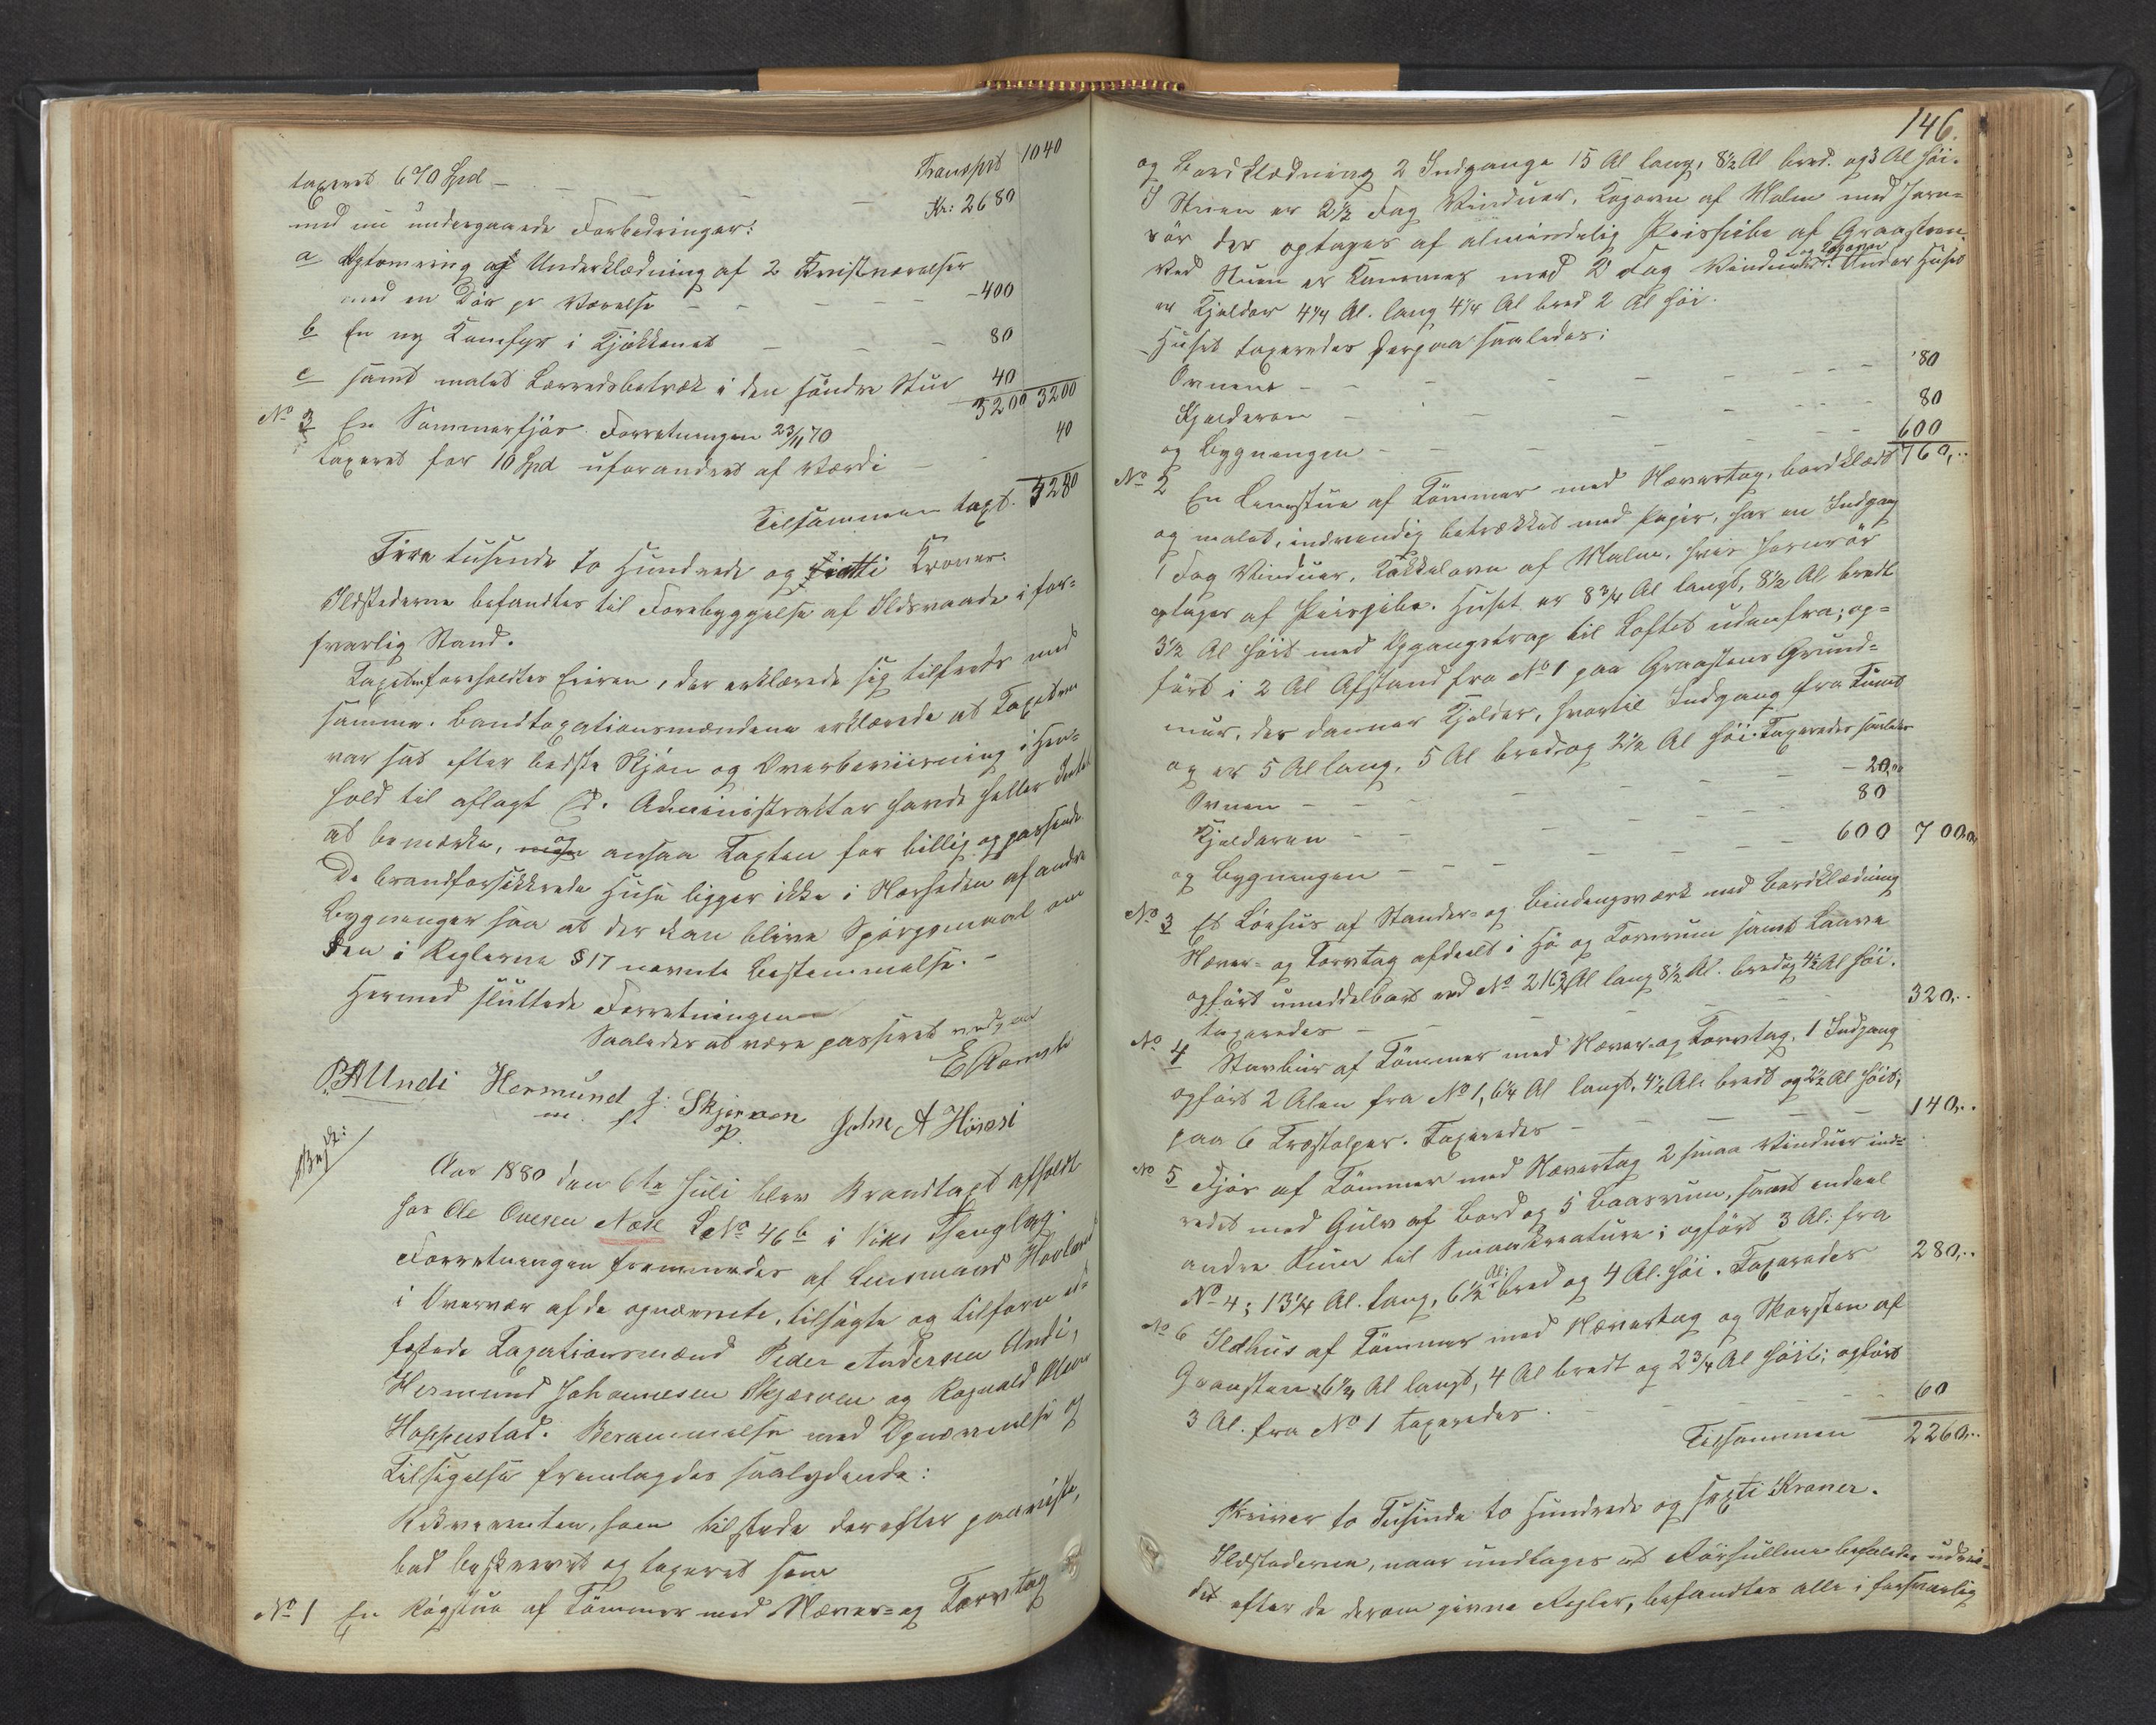 Transport 1040
taxeret 670 Spd — Kr: 2680
med nu undergaaende Forbedringer:
a Optømring og Underklædning af 2 Kvistværelser
med en Dør pr Værelse — 400
b En ny Komfyr i Kjøkkenet — 80
c samt malet Lærredsbetræk i den søndre Stue 40
3200 3200
No 3 En Sommerfjøs Forretningen 23/11 70
taxeret for 10 Spd uforandret af Værdi — 40
Tilsammen taxt. 4280
Fire tusende to Hundrede og Kroner.
Ildstederne befandtes til Forebyggelse af Ildsvaade i for-
svarlig Stand.
Taxten foreholdtes Eieren, der erklærede sig tilfreds med
samme. Brandtaxationsmændene erklærede at Taxten
var sat efter bedste Skjøn og Overbeviisning i Hen-
hold til aflagt Ed. Administrator havde heller Intet
at bemærke, og ansaa Taxten for billig og passende
De brandforsikkrede Huse ligger ikke i Nærheden af andre
Bygninger saa at der kan blive Spørgsmaal om
den i Reglerne § 17 nævnte Bestemmelse. —
Hermed sluttede Forretningen
Saaledes at være passeret vedgaaes
P. A Undi Hermund J: Skjerven John A Hönsi
m. p. P.
Aar 1880 den 6te Juli blev Brandtaxt afholdt
hos Ole Olesen Nese LNo 46b i Viks Thinglag.
Forretningen fremmedes af Lensmand Hovland
i Overvær af de opnævnte, tilsagte og tilforn ed-
fæstede Taxationsmænd Peder Andersen Undi,
Hermund Johannesen Skjerven og Ragnald Olsen
Hoppestad. Berammelse med Opnævnelse og
Tilsigelse fremlagdes saalydende:
Rekvirenten, som tilstede derefter paaviste,
bad beskrevet og taxeret som
No 1 En Røgstue af Tømmer med Næver- og Torvtag
146.
og Bordklædning 2 Indgange 15 Al lang, 8½ Al bred. og 3 Al høi.
I Stuen er 2½ Fag Vinduer, Kogovn af Malm med Jern-
rør der optages af almindelig Peispibe af Graasten.
Ved Stuen er Kammer med 2 Fag Vinduer og Kogovn. Under Huset
er Kjelder 4¼ Al. lang 4¼ Al bred 2 Al høi.
Huset taxeredes herpaa saaledes:
Ovnene — 80
Kjelderen — 80
og Bygningen — 600
760,..
No 2 En Lemstue af Tømmer med Nævertag, bordklædt
og malet, indvendig betrækket med Papir, har en Indgang
1 Fag Vinduer, Kakkelovn af Malm, hvis Jernrør
optages af Peispibe. Huset er 8¾ Al langt, 8½ Al bredt
3½ Al høit med Opgangstrap til Loftet udenfra; op-
ført i 2 Al Afstand fra No 1 paa Graastens Grund-
mur, der danner Kjelder, hvortil Indgang fra Tunet
og er 5 Al lang, 5 Al bred og 2½ Al høi. Taxeredes saaledes
Ovnen — 20,..
Kjelderen — 80
og Bygningen — 600 700,..
No 3 Et Løehus af Stander- og Bindingsværk med Bordklædning
Næver- og Torvtag afdeelt i Hø og Kornrum samt Laave
opført umiddelbart ved No 2 16¾ Al lang 8½ Al. bred og 4½ Al høi.
taxeredes — 320,..
No 4 Stavbur af Tømmer med Næver- og Torvtag, 1 Indgang
opført 2 Alen fra No 1, 6¼ Al langt, 4½ Al: bredt og 2½ Al høit;
paa 6 Træstolper. Taxeredes — 140,..
No 5 Fjøs af Tømmer med Nævertag 2 smaa Vinduer ind-
redet med Gulv af Bord og 5 Baasrum, samt endeel
andre Rum til Smaakreature; opført 3 Al: fra
No 4; 13¼ Al. lang, 6½ Al: bred og 4 Al. høi. Taxeredes 280,..
No 6 Ildhus af Tømmer med Nævertag og Skorsten af
Graasten 6¼ Al langt, 4 Al bredt og 2¾ Al høit; opført
3 Al. fra No 1 taxeredes — 60
Tilsammen 2260,..
Skriver to Tusinde to Hundrede og sexti Kroner.
Ildstederne, naar undtages at Rørhullene befaledes udvi-
det efter de derom givne Regler, befandtes alle i forsvarlig